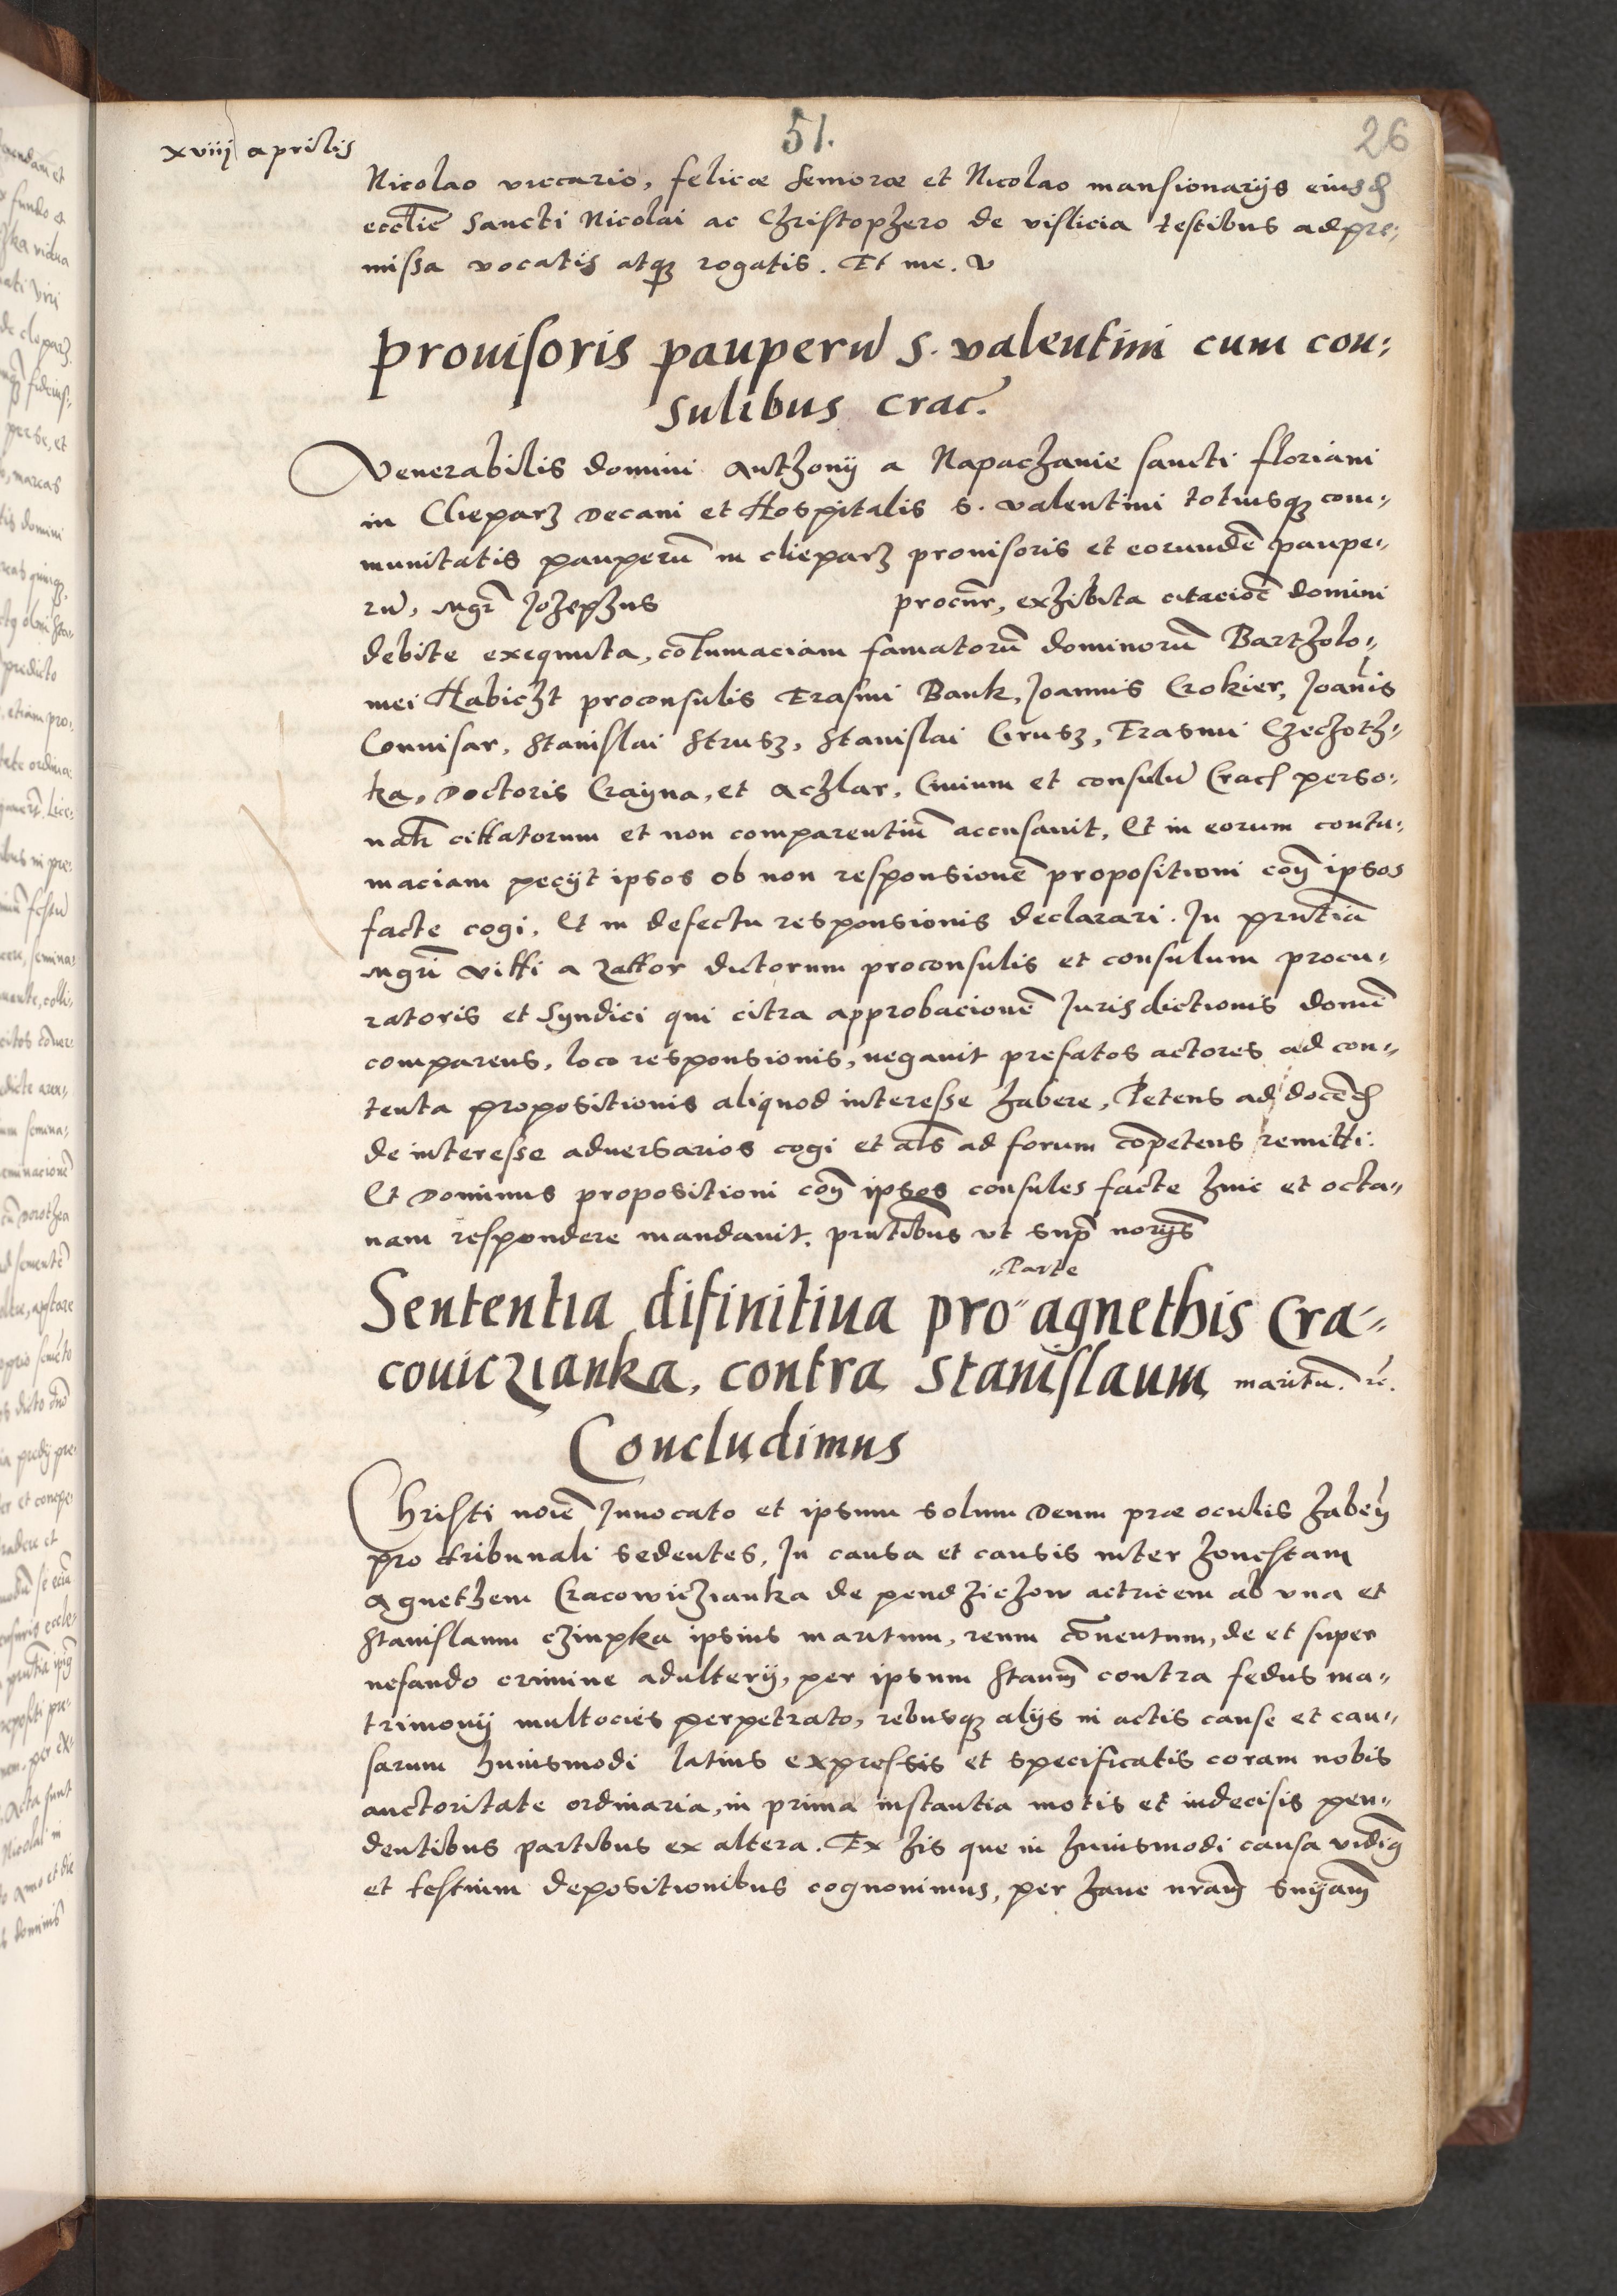 51.
26
xviiij aprilis
Nicolao viccario, felicæ Semoræ et Nicolao mansionarijs eiusd
ecclie Sancti Nicolai ac Christophero de vislicia testibus ad pre;
missa vocatis atqz rogatis. Et me. v
Prouisoris pauperu S. valentini cum con;
sulibus Crac.
Venerabilis domini Anthonij a Napachanie sancti floriani
in Clieparz Decani et Hospitalis S. valentini totiusqz com„
munitatis pauperu in clieparz prouisoris et eorunde paupe„
ru, mgr Josephus procur, exhibita citacioe domini
debite exequuta, cotumaciam famatoru dominoru Bartholo„
mei Habicht proconsulis Erasmi Bank, Joannis Crokier, Joanis
Connisar, Stanislai Strusz, Stanislai Crusz, Erasmi Czechoth„
ka, Doctoris Crayna, et Aczlar, Ciuium et consulu Crac perso„
natr cittatorum et non comparentiu accusauit, Et in eorum contu„
maciam pecijt ipsos ob non responsione propositioni con ipsos
facte cogi, Et in defectu responsionis declarari. In prntia
mgri vitti a Zattor dictorum proconsulis et consulum procu„
ratoris et Syndici qui citra approbacione Jurisdictionis dome
comparens, loco responsionis, negauit prefatos actores ad con„
tenta propositionis aliquod interesse habere, Petens ad docend
de interesse aduersarios cogi et als ad forum copetens remitti.
Et Dominus propositioni con ipsos consules facte hinc et octa„
uam respondere mandauit. prntibus vt supr norijs
„Parte
Sententia difinitiua pro„ agnethis Cra„
couiczianka, contra Stanislaum maritu. rc.
Concludimus
Christi noie Inuocato et ipsum solum Deum præ oculis haben
pro tribunali sedentes, In causa et causis inter honestam
Agnethem Cracowiczianka de pendzichow actricem ab vna et
Stanislaum czinpka ipsius maritum, reum couentum, de et super
nefando crimine adulterij, per ipsum Staum contra fedus ma„
trimonij multocies perpetrato, rebusqz alijs in actis cause et cau„
sarum huiusmodi latius expressis et specificatis coram nobis
auctoritate ordinaria, in prima instantia motis et indecisis pen„
dentibus partibus ex altera. Ex his que in huiusmodi causa vidim
et testium depositionibus cognouimus, per hanc nram snijam